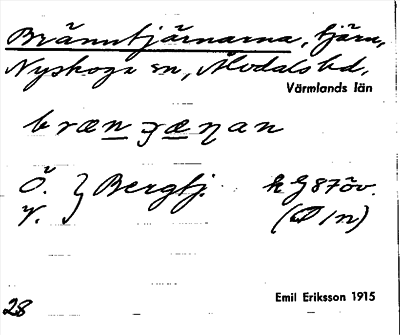 Bränntjärnarna, tjärn,
Nyskoga sn, Älvdals hd,
Värmlands län
brænʒæɳan
Ö. } Bergtj. k G 87öv.
V. (Ø 1n)
Emil Eriksson 1915
28